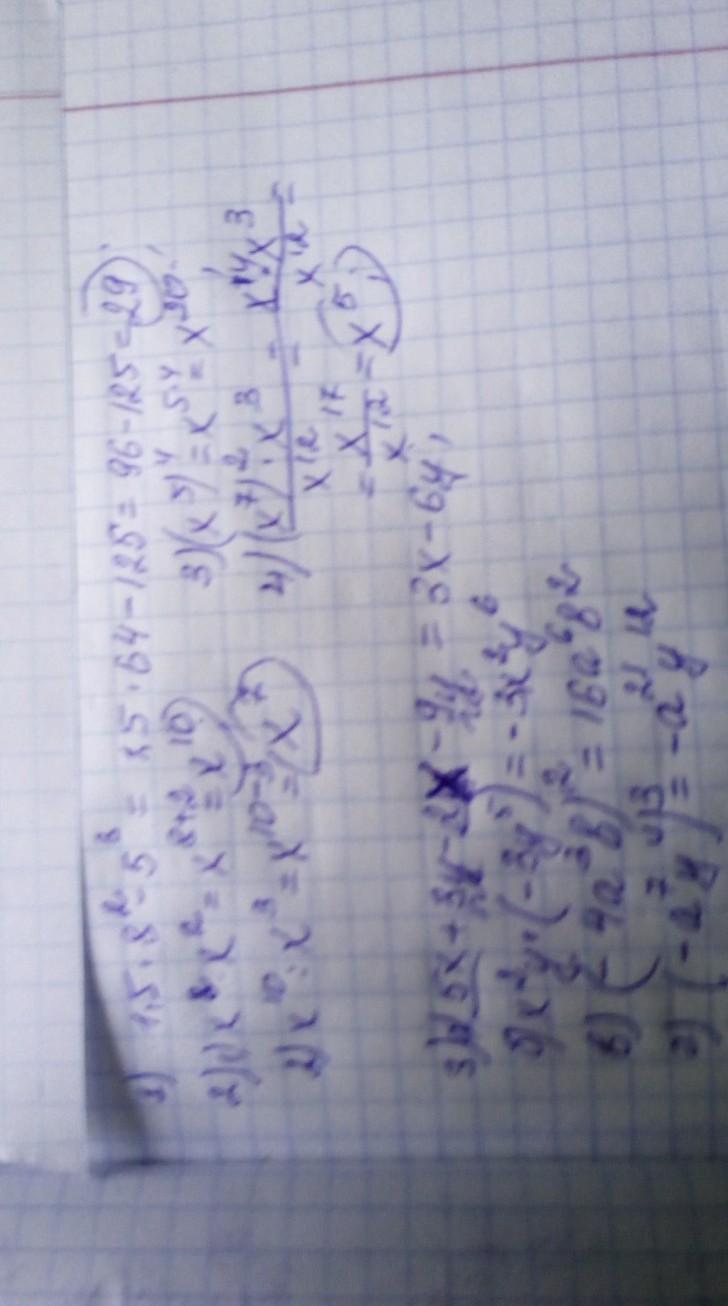 1) 1,5·8² - 5³ = 1,5·64 - 125 = 96 - 125 = -29;
2) 1) x⁸·x² = x⁸⁺² = x¹⁰;
2) x¹⁰ : x³ = x¹⁰⁻³ = x⁷
3) (x⁵)⁴ = x⁵·⁴ = x²⁰;
4) (x⁷)²·x³ / x¹² = x¹⁴·x³ / x¹² =
= x¹⁷ / x¹² = x⁵;
3) а) 5x + 3y - 2x - 9y = 3x - 6y;
б) x²y·(-3y⁵) = -3x²y⁶
в) (-4a³b)² = 16a⁶b²
г) (-a⁷y⁴)³ = -a²¹y¹²